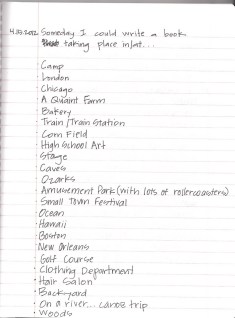 4.19.2012 Someday I could write a book
taking place in/at...
· Camp
· London
· Chicago
· A Quaint Farm
· Bakery
· Train/Train Station
· Corn Field
· High School Art
· Stage
· Caves
· Ozarks
· Amusement Park (with lots of rollercoasters)
· Small Town Festival
· Ocean
· Hawaii
· Boston
· New Orleans
· Golf Course
· Clothing Department
· Hair Salon
· Backyard
· On a river... canoe trip
· Woods